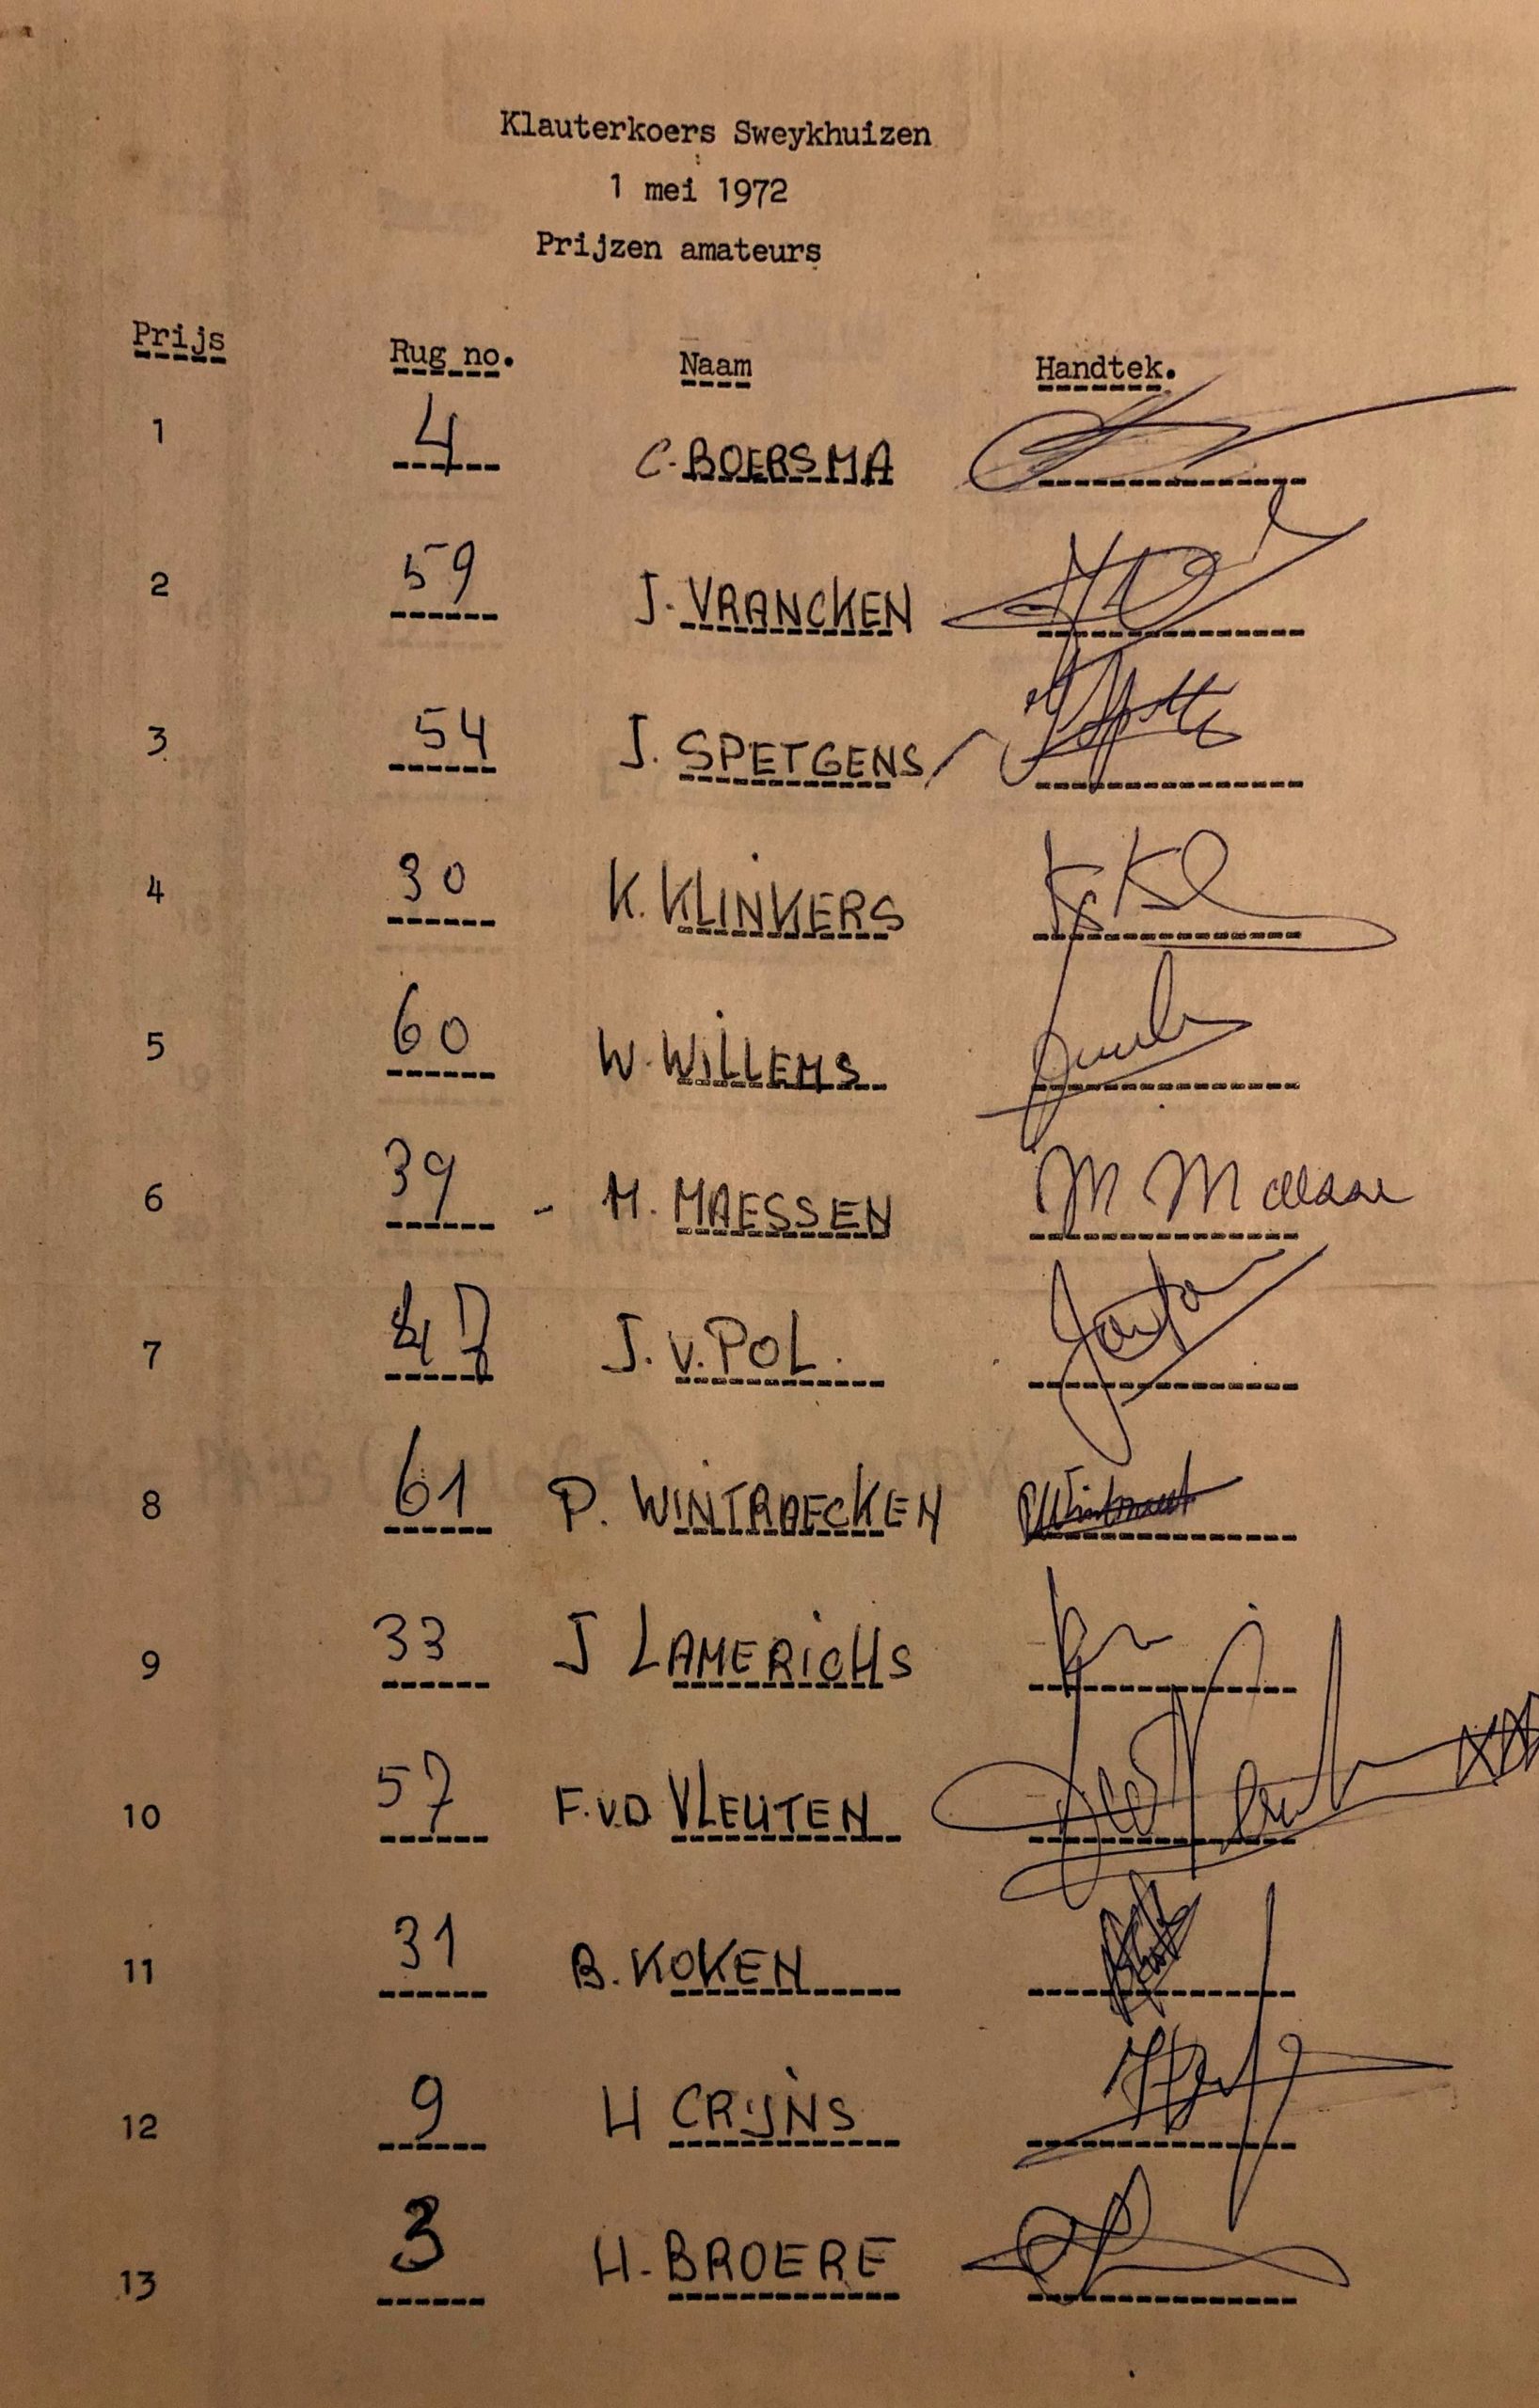 Klauterkoers Sweykhuizen
1 mei 1972
Prijzen amateurs
Prijs Rug no. Naam Handtek.
1 4 C. BOERSMA
2 59 J. VRANCKEN
3 54 J. SPETGENS
4 30 K. KLINKERS
5 60 W. WILLEMS
6 39 - M. MAESSEN M Maesse
7 47 J. V. POL.
8 61 P. WINTRAECKEN
9 33 J LAMERICHS
10 57 F. V.D VLEUTEN
11 31 B. KOKEN
12 9 H CRIJNS
13 3 H. BROERE